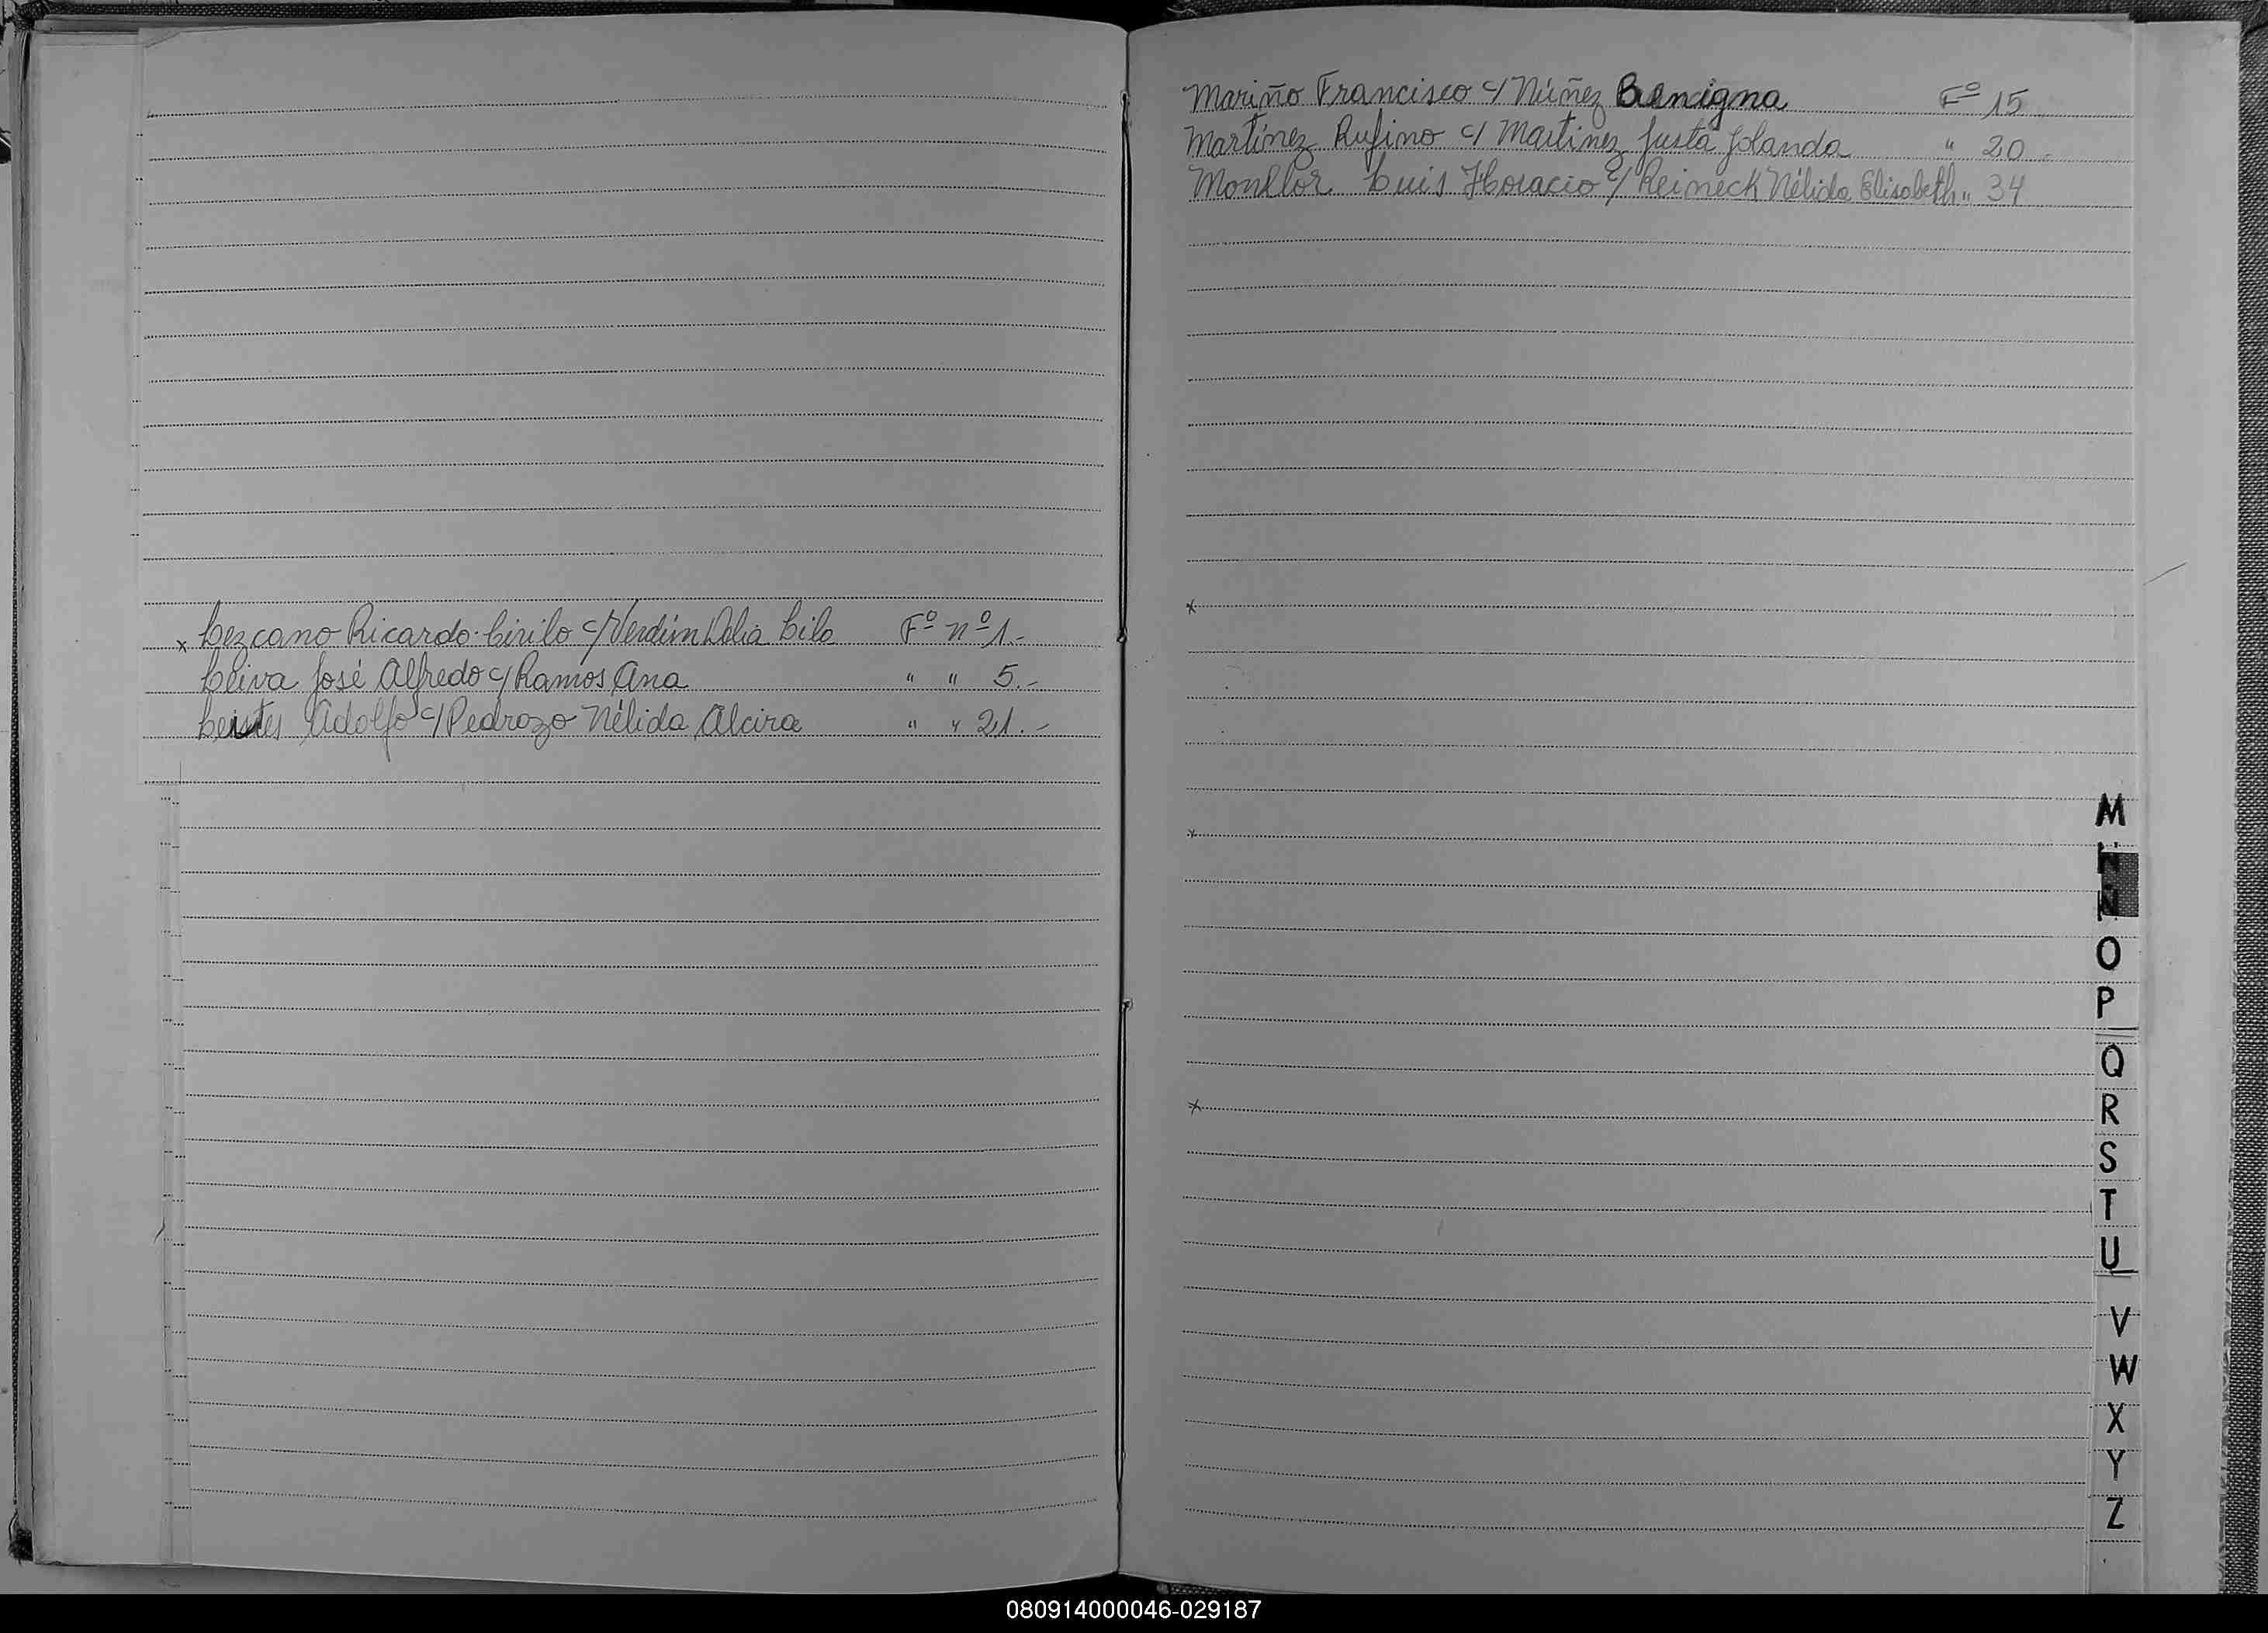 x Lezcano Ricardo Cirilo c/ Verdún Delia Lila Fº nº 1.-
Leiva José Alfredo c/ Ramos Ana " " 5.-
Adolfo c/ Pedrozo Nélida Alcira " " 21.-
Mariño Francisco c/ Núñez Benigna Fº 15
Martínez Rufino c/ Martinez Justa Jolanda " 20
Monllor Luis Horacio c/ Reineck Nélida Elisabeth " 34
x
x
x
M
N
Ñ
O
P
Q
R
S
T
U
V
W
X
Y
Z
080914000046-029187